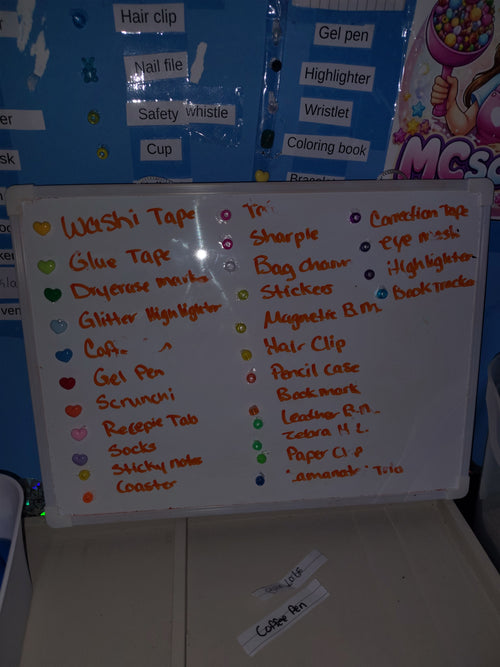 Hair clip
Nail file
Safety whistle
Cup
Gel pen
Highlighter
Wristlet
Coloring book
MCSC
Washi Tape
Glue Tape
Dryerase marks
Glitter Highlighter
Gel Pen
Scrunchi
Recepie Tab
Socks
Sticky notes
Coaster
Sharpie
Bag charm
Stickers
Magnetic B.M.
Hair Clip
Pencil Case
Bookmark
Leather B.M.
Zebra H L.
Paper Clip
Trio
Correction Tape
eye mask
Highlighter
Book Tracker
Coffee Pen